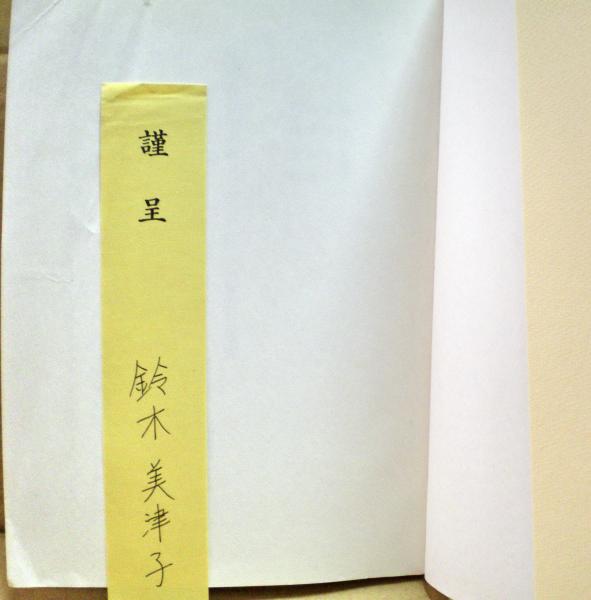 謹呈
鈴木美津子